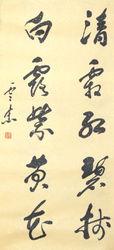 清霜紅碧樹
白露紫黄花